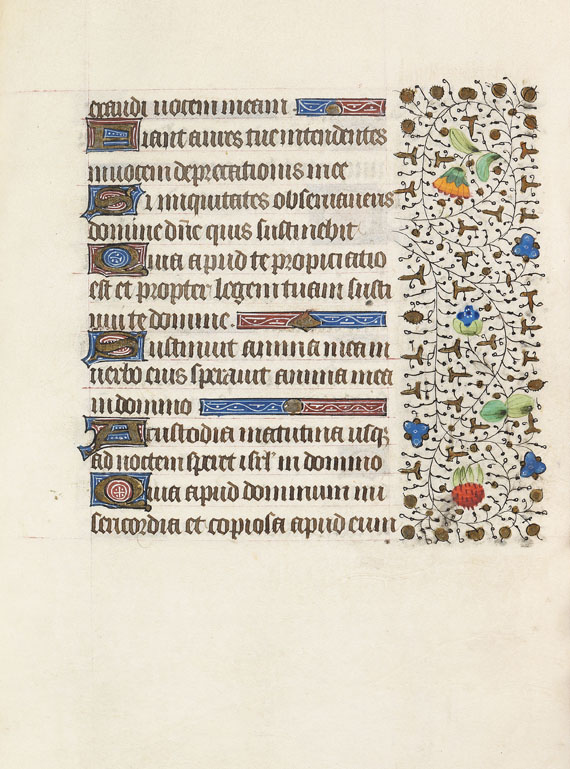 exaudi uocem meam
Fiant aures tue intendentes
in uocem deprecationis mee
Si iniquitates obseruaueris
domine dñe quis sustinebit
Quia apud te propiciatio
est et propter legem tuam susti
nui te domine
Sustinuit anima mea in
uerbo eius sperauit anima mea
in domino
A custodia matutina usq;
ad noctem speret isrl in domino
Quia apud dominum mi
sericordia et copiosa apud eum